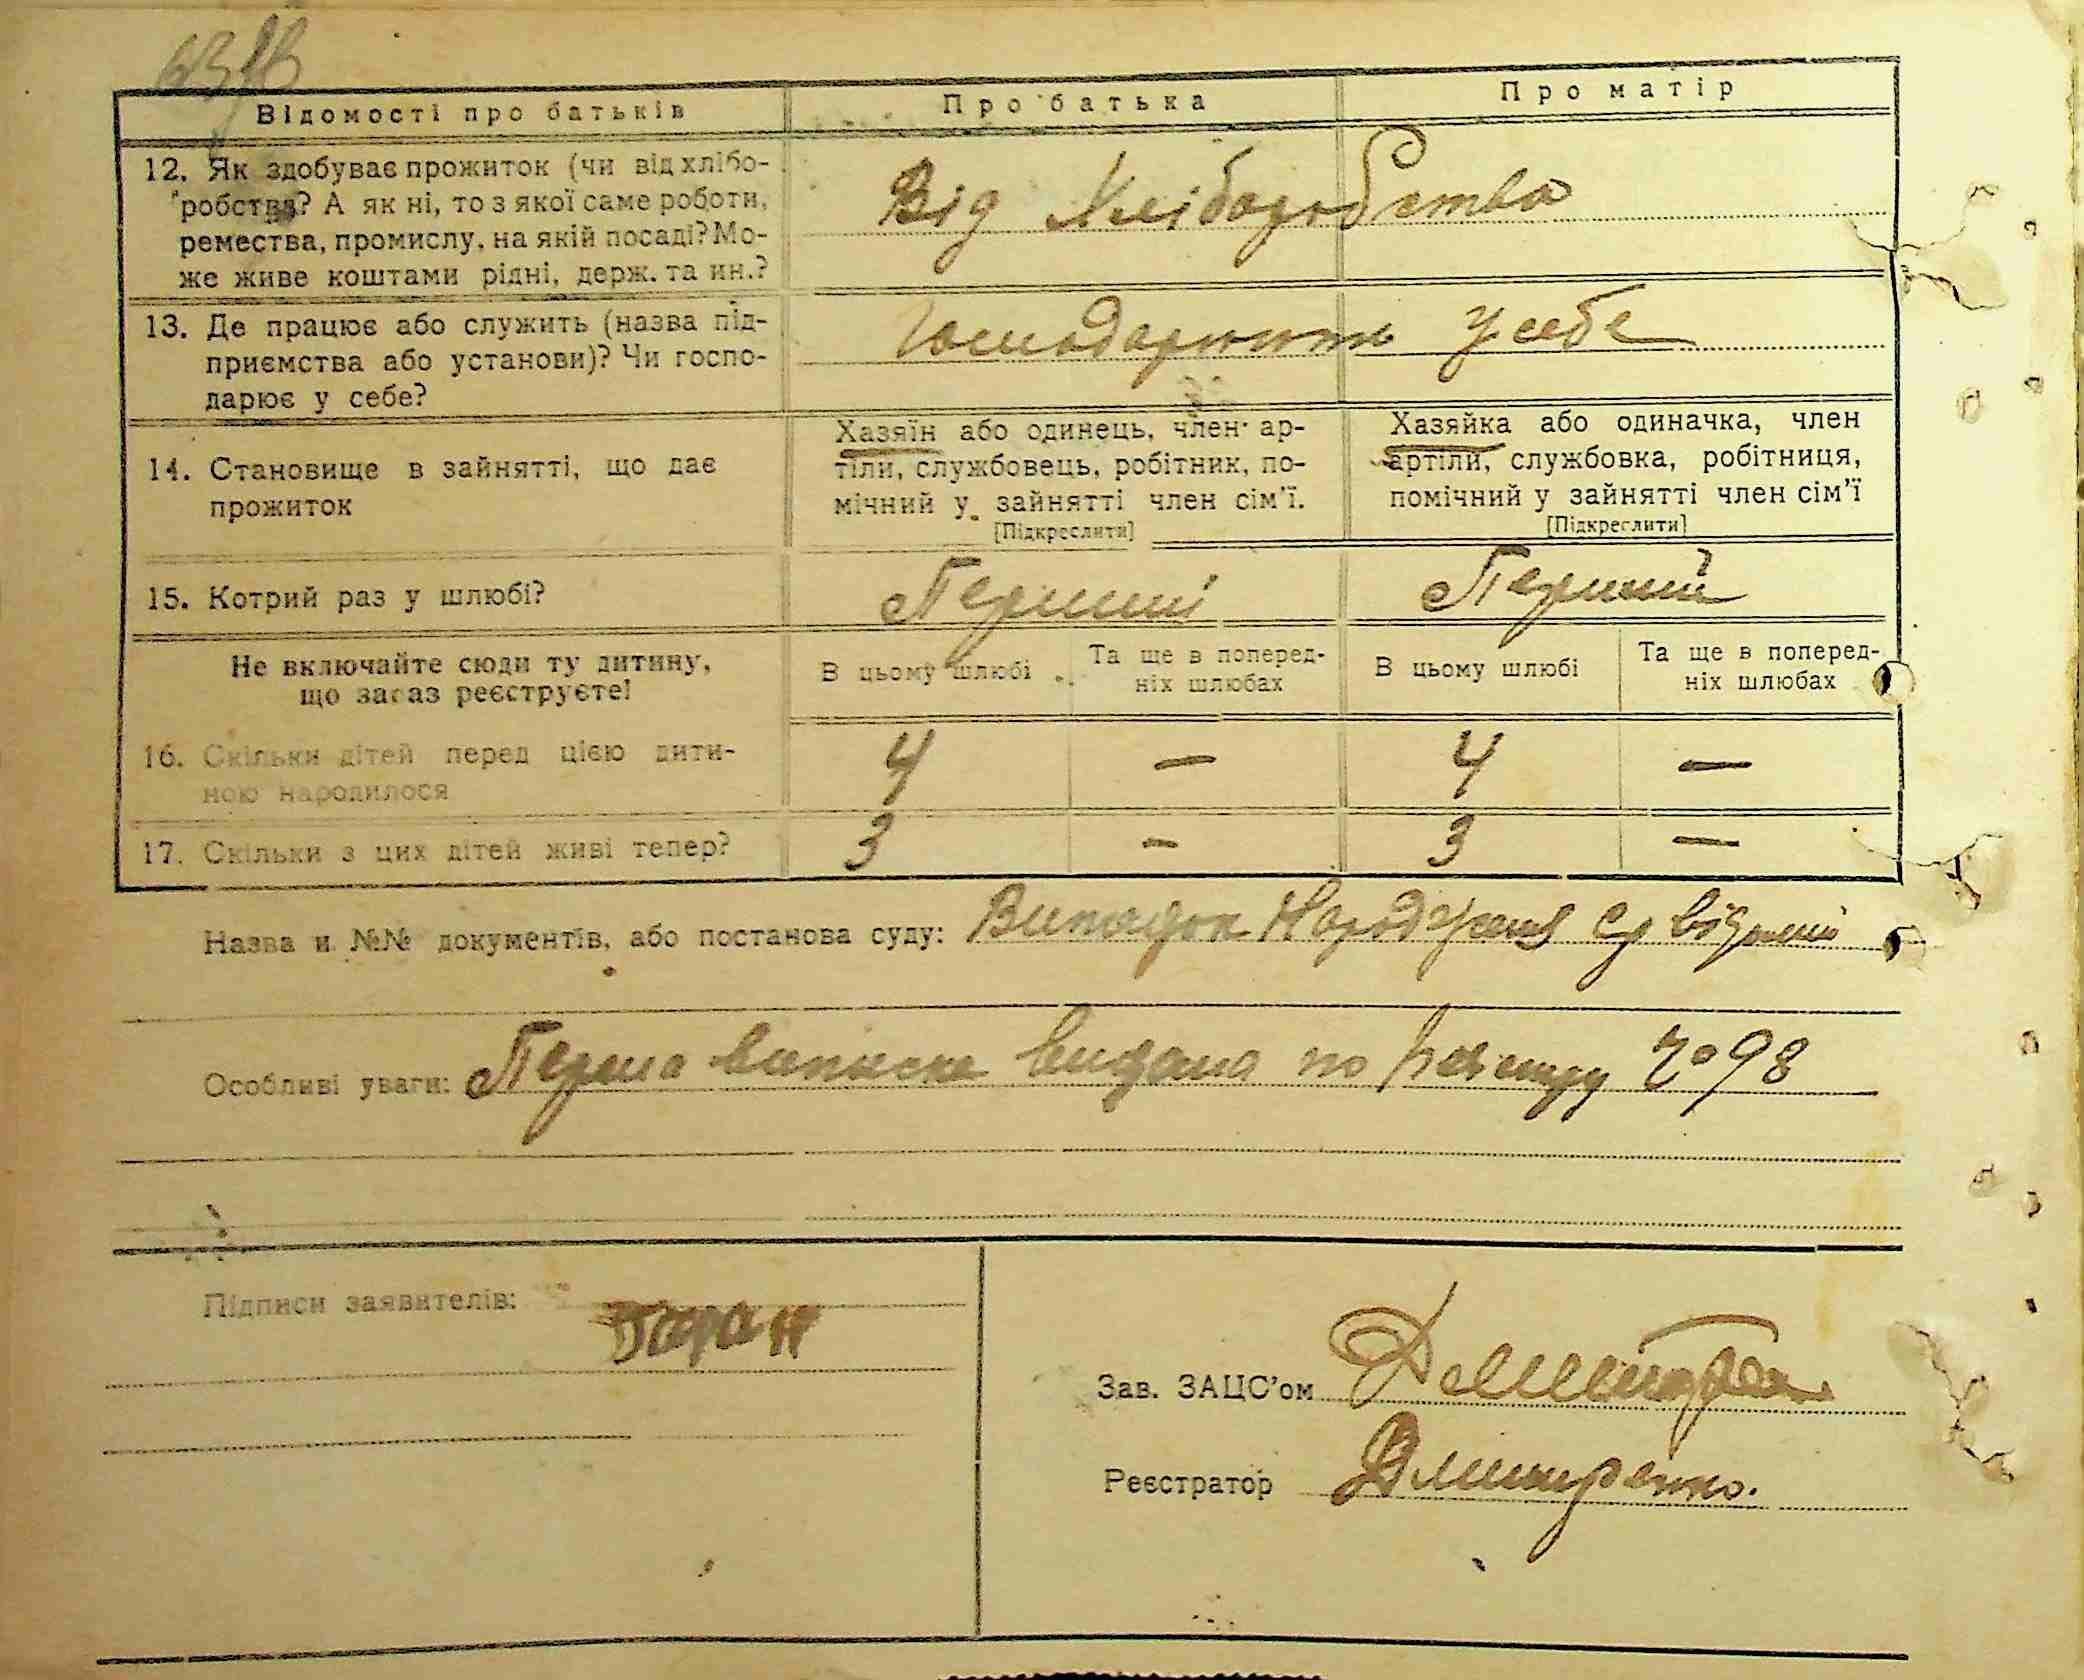 Відомості про батьків
Про батька
Про матір
12. Як здобуває прожиток (чи від хлібо-
робства? А як ні, то з якої саме роботи,
ремества, промислу, на якій посаді? Мо-
же живе коштами рідні, держ. та ин.?
Від Хліборобства
13. Де працює або служить (назва під-
приємства або установи)? Чи госпо-
дарює у себе?
Господарюють У себе
14. Становище в зайнятті, що дає
прожиток
Хазяїн або одинець, член ар-
тіли, службовець, робітник, по-
мічний у зайнятті член сім'ї.
[Підкреслити]
Хазяйка або одиначка, член
артіли, службовка, робітниця,
помічний у зайнятті член сім'ї
[Підкреслити]
15. Котрий раз у шлюбі?
Перший
Перший
Не включайте сюди ту дитину,
що зараз реєструєте!
В цьому шлюбі
Та ще в поперед-
ніх шлюбах
В цьому шлюбі
Та ще в поперед-
ніх шлюбах
16. Скільки дітей перед цією дити-
ною народилося
4 — 4 —
17. Скільки з цих дітей живі тепер?
3 - 3 —
Назва и №№ документів, або постанова суду: Випадок Народження
Особливі уваги: Перша виписка видана по реєстру 98
Підписи заявителів:
Таран
Зав. ЗАЦС'ом
Реєстратор Дмитренко.